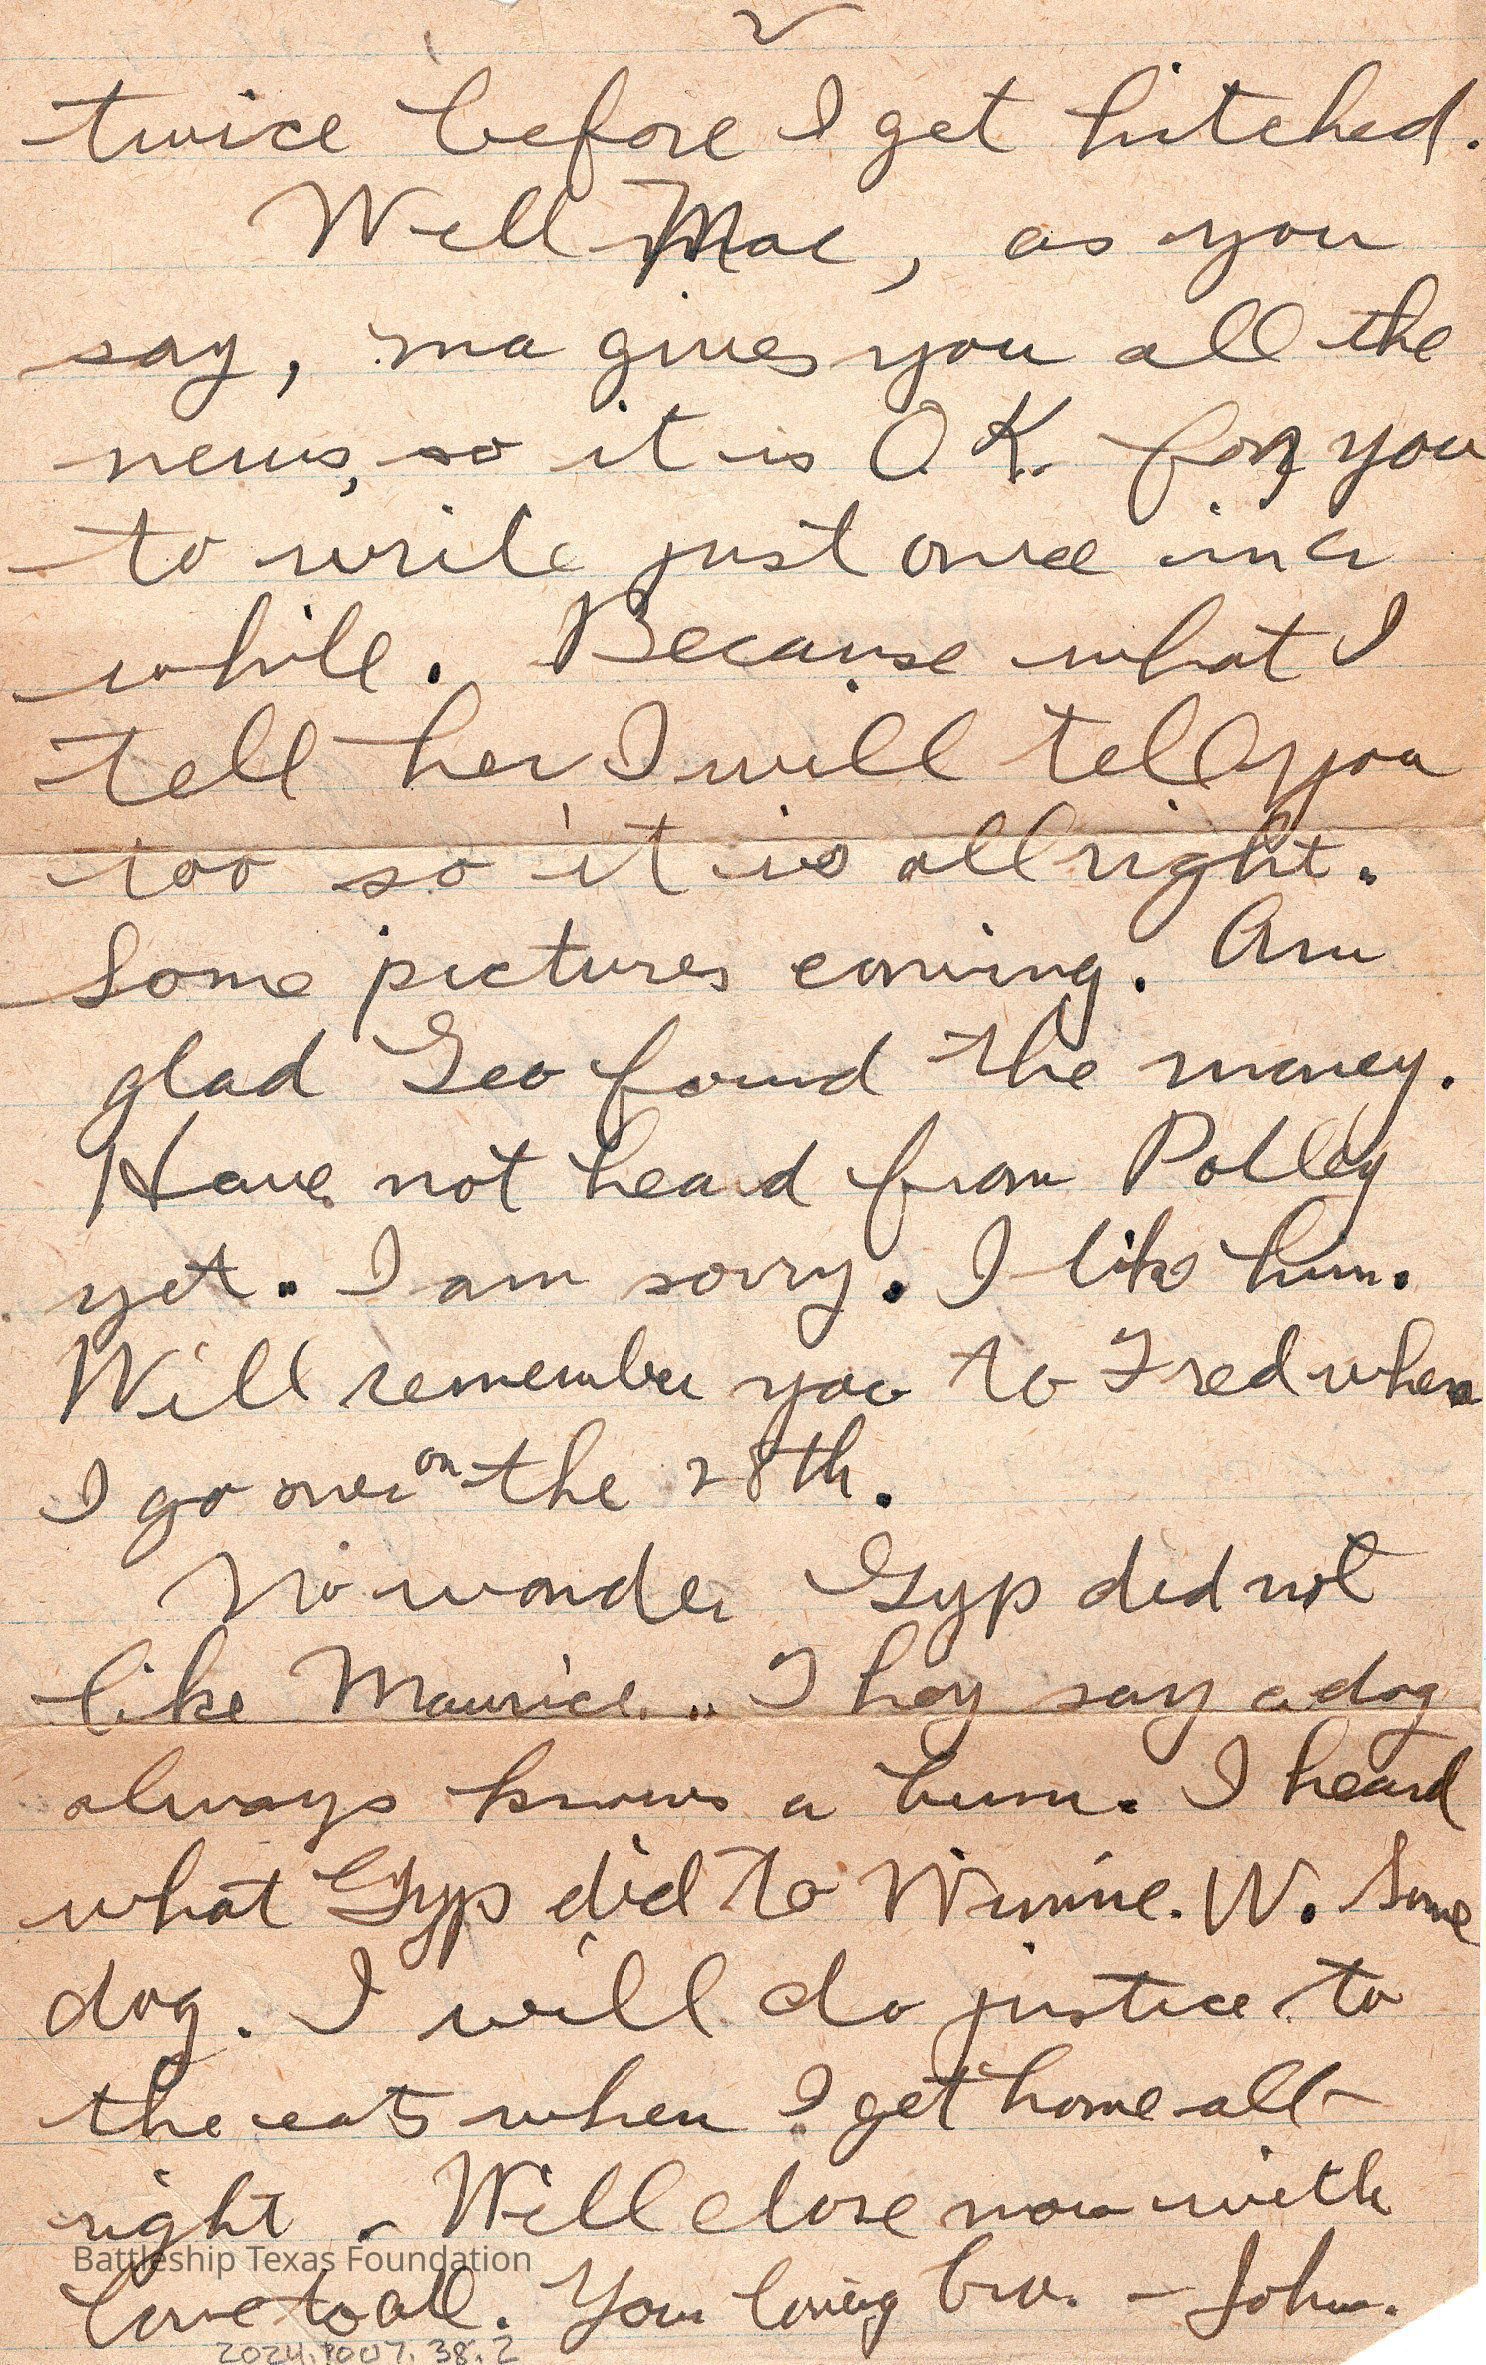 2
twice before I get hitched.
Well Mac, as you
say, ma gives you all the
news, so it is O.K. for you
to write just once in a
while. Because what I
tell her I will tell you
too so it is all right.
Some pictures coming. Am
glad Geo found the money.
Have not heard from Polley
yet. I am sorry. I like him.
Will remember you to Fred when
I go over on the 28th.
No wonder Gyp did not
like Maurice.. They say a dog
always knows a bum. I heard
what Gyp did to Winnie. W. Some
dog. I will do justice to
the eats when I get home all-
right. - Will close now with
Battleship Texas Foundation
love to all. Your loving bro. - John.
2024.1007.38.2